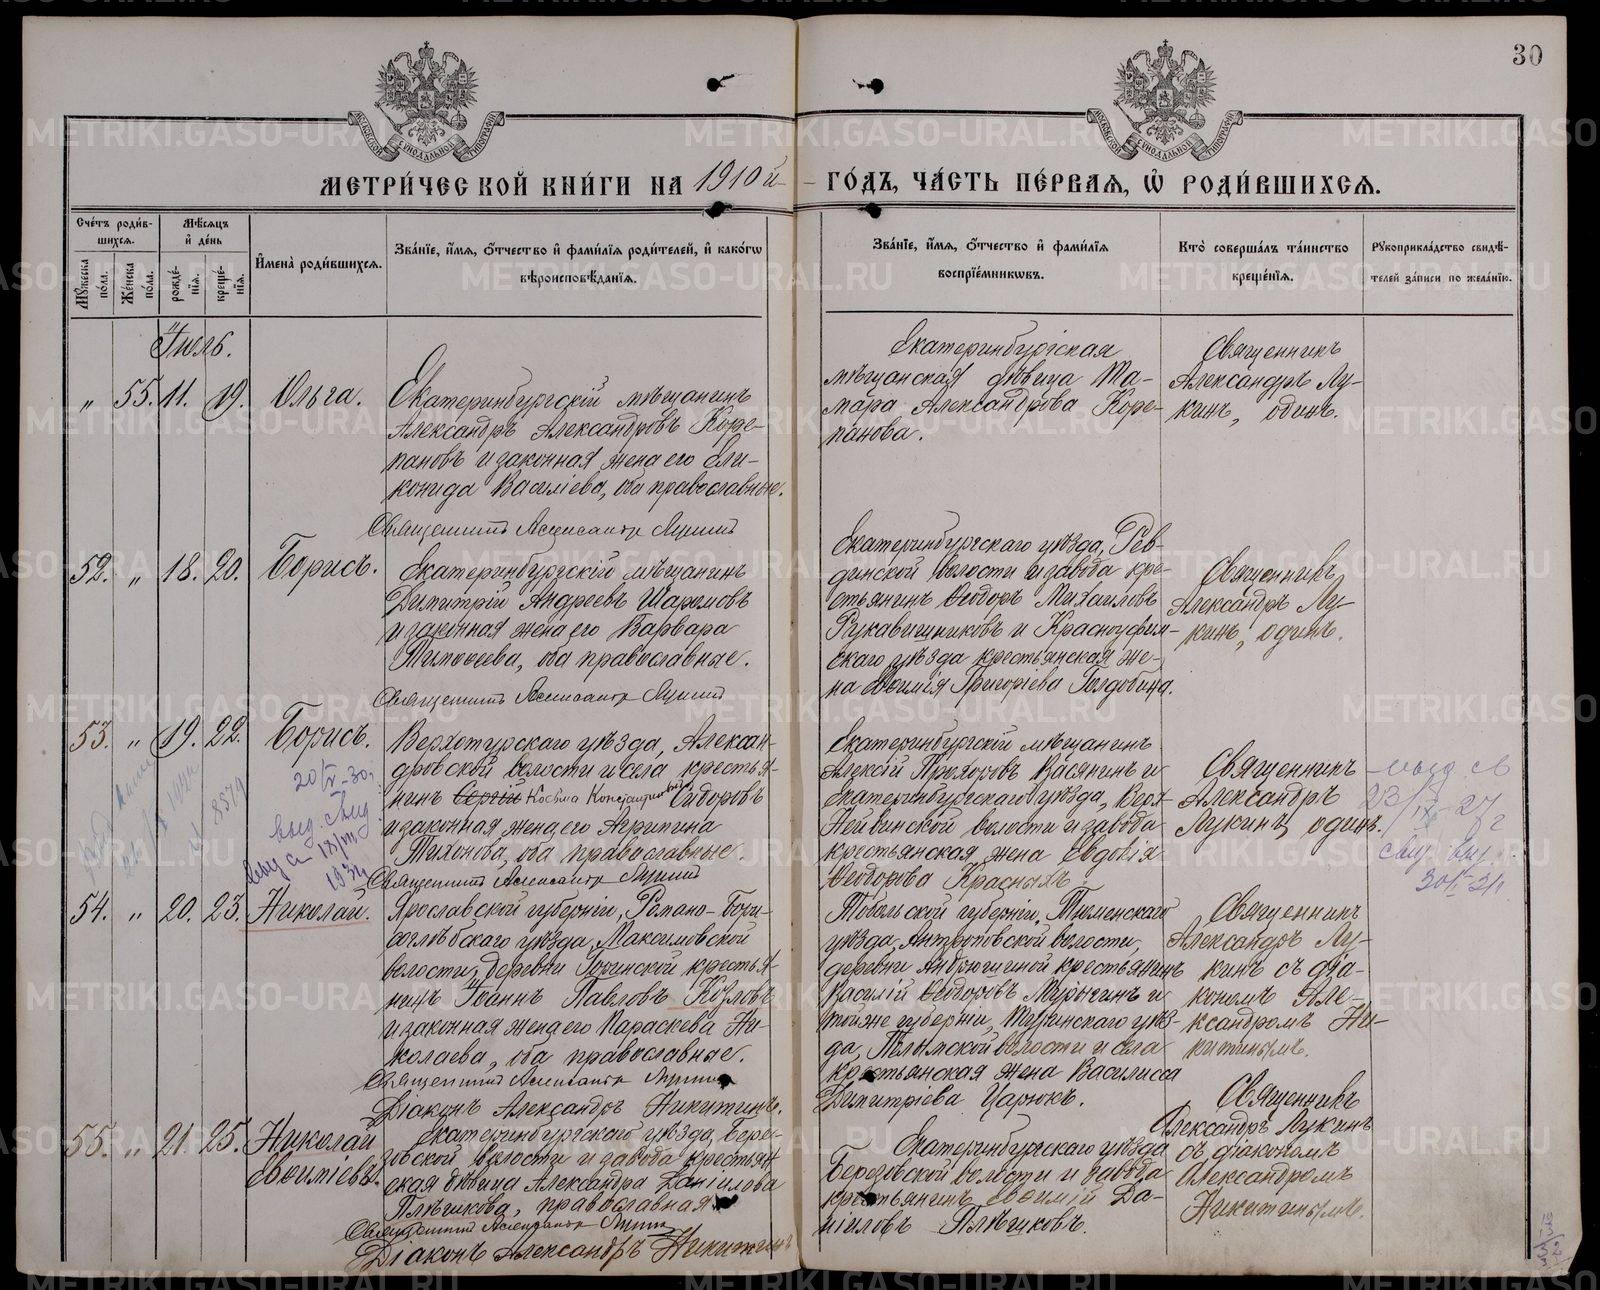 30
МЕТРИ́ЧЕСКОЙ КНИ́ГИ НА 1910 й ГО́ДЪ, ЧА́СТЬ ПЕ́РВАЯ, Ѡ҆ РОДИ́ВШИХСЯ.
Сче́тъ роди́в-
шихся.
Мѣ́сяцъ
и҆ де́нь
Мꙋжеска по́ла.
Же́нска по́ла.
рожде́-
нїя.
креще́-
нїя.
И҆мена̀ роди́вшихся.
Зва́нїе, и҆́мя, ѻ҆́тчество и҆ фами́лїя роди́телей, и҆ како́гѡ
вѣроисповѣ́данїя.
Зва́нїе, и҆́мя, ѻ҆́тчество и҆ фами́лїя
воспрїе́мникѡвъ.
Кто̀ соверша́лъ та́инство
креще́нїя.
Рꙋкоприкла́дство свидѣ́-
телей за́писи по жела́нїю.
Іюль.
„ 55. 11. 19. Ольга.
Екатеринбургскій мѣщанинъ
Александръ Александровъ Коре-
пановъ и законная жена его Ели-
конида Василіева, оба православные.
Священникъ Александръ Лукинъ
Екатеринбургская
мѣщанская дѣвица Та-
мара Александрова Коре-
панова.
Священникъ
Александръ Лу-
кинъ, одинъ.
52. „ 18. 20. Борисъ.
Екатеринбургскій мѣщанинъ
Димитрій Андреевъ Шаромовъ
и законная жена его Варвара
Тимоѳеева, оба православные.
Священникъ Александръ Лукинъ
Екатеринбургскаго уѣзда, Рев-
динской волости и завода кре-
стьянинъ Ѳеодоръ Михаиловъ
Рукавишниковъ и Красноуфим-
скаго уѣзда крестьянская же-
на Евѳимія Григоріева Голдовина.
Священникъ
Александръ Лу-
кинъ, одинъ.
53. „ 19. 22. Борисъ.
Верхотурскаго уѣзда, Алексан-
дровской волости и села крестья-
нинъ Сергій Косьма Константиновъ Сидоровъ
и законная жена его Агрипина
Тихонова, оба православные.
Священникъ Александръ Лукинъ
Екатеринбургскій мѣщанинъ
Алексій Прохоровъ Васянинъ и
Екатеринбургскаго уѣзда, Верх-
Нейвинской волости и завода
крестьянская жена Евдокія
Ѳеодорова Красныхъ.
Священникъ
Александръ
Лукинъ, одинъ.
54. „ 20. 23. Николай.
Ярославской губерніи, Романо-Бори-
соглѣбскаго уѣзда, Максимовской
волости, деревни крестья-
нинъ Іоаннъ Павловъ Козловъ
и законная жена его Параскева Ни-
колаева, оба православные.
Священникъ Александръ Лукинъ
Діаконъ Александръ Никитинъ.
Тобольской губерніи, Тюменскаго
уѣзда, Антроповской волости,
деревни Андрюшиной крестьянинъ
Василій Ѳеодоровъ и
той же губерніи, Туринскаго уѣз-
да, Пелымской волости и села
крестьянская жена Василисса
Димитріева Царюкъ.
Священникъ
Александръ Лу-
кинъ съ діа-
кономъ Але-
ксандромъ Ни-
китинымъ.
55. „ 21. 25. Николай
Евѳиміевъ.
Екатеринбургскаго уѣзда, Бере-
зовской волости и завода крестьян-
ская дѣвица Александра Даніилова
Плѣшкова, православная.
Священникъ Александръ Лукинъ
Діаконъ Александръ Никитинъ
Екатеринбургскаго уѣзда
Березовской волости и завода
крестьянинъ Евѳимій Да-
ніиловъ Плѣшковъ.
Священникъ
Александръ Лукинъ
съ діакономъ
Александромъ
Никитинымъ.
METRIKI.GASO-URAL.RU